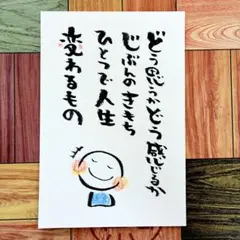 どう思うかどう感じるか
じぶんのきもち
ひとつで人生
変わるもの